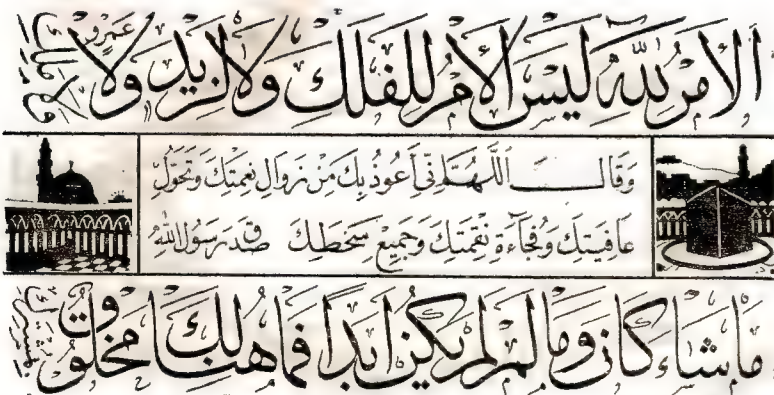 الأَمْرُ لِلَّهِ لَيْسَ الأَمْرُ لِلْفَلَكِ وَلَا لِزَيْدٍ وَلَا عَمْرٍو
وَقَالَ اللَّهُمَّ إِنِّي أَعُوذُ بِكَ مِنْ زَوَالِ نِعْمَتِكَ وَتَحَوُّلِ
عَافِيَتِكَ وَفُجَاءَةِ نِقْمَتِكَ وَجَمِيعِ سَخَطِكَ صَدَقَ رَسُولُ اللَّهِ
مَا شَاءَ كَانَ وَمَا لَمْ لَمْ يَكُنْ أَبَدًا فَمَا هُنَالِكَ مَخْلُوقٌ